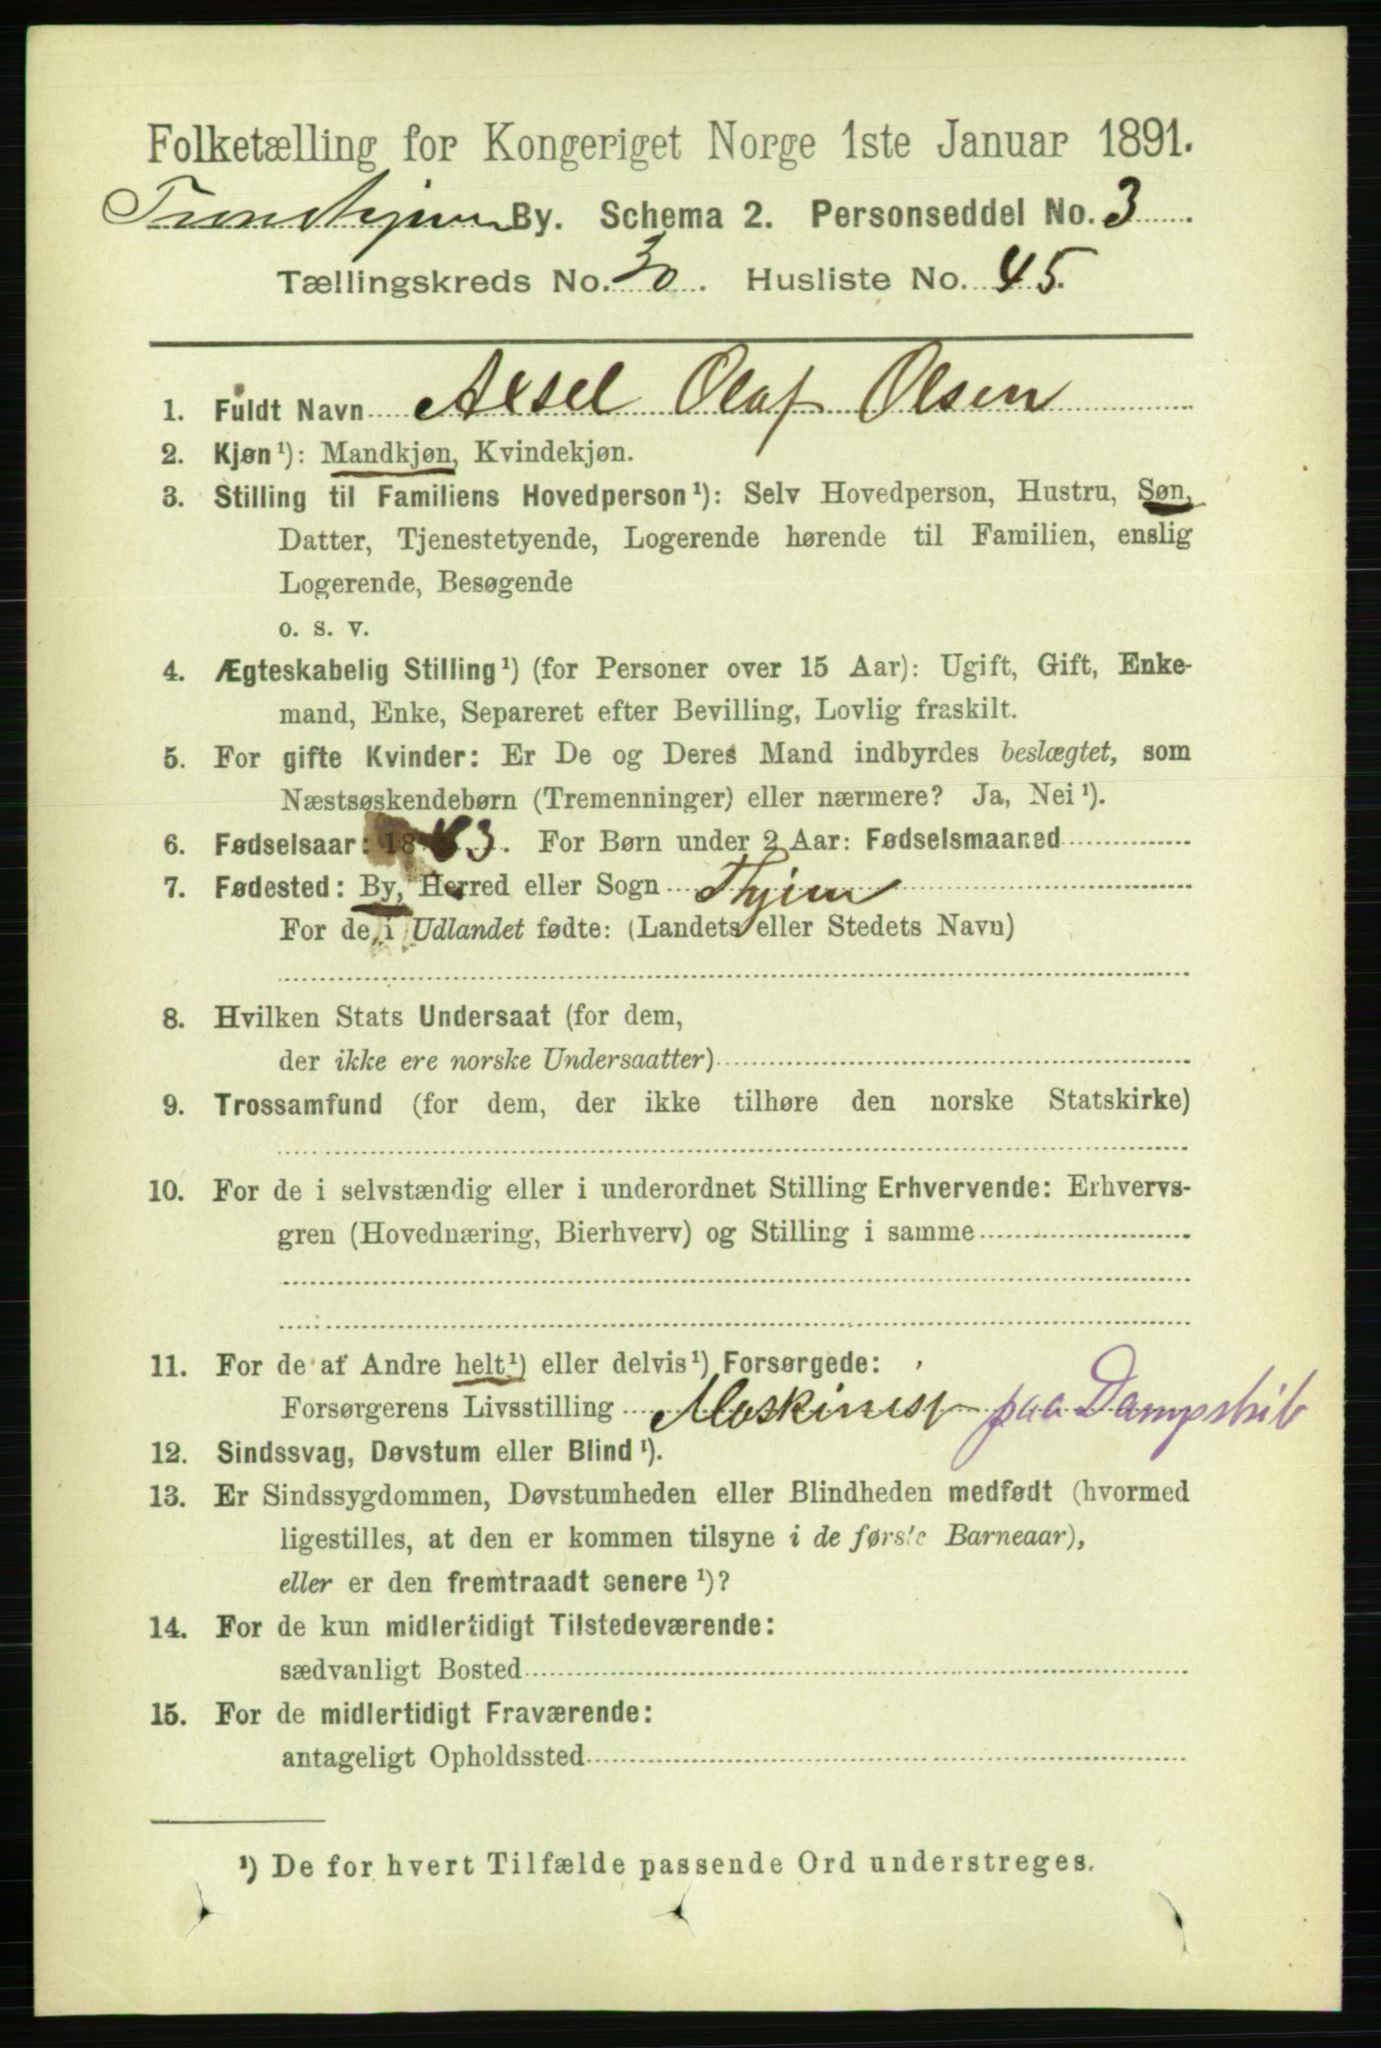 Folketælling for Kongeriget Norge 1ste Januar 1891.
Trondhjem By. Schema 2. Personseddel No. 3
Tællingskreds No. 30. Husliste No. 45.
1. Fuldt Navn Axsel Olaf Olsen
2. Kjøn¹): Mandkjøn, Kvindekjøn.
3. Stilling til Familiens Hovedperson¹): Selv Hovedperson, Hustru, Søn,
Datter, Tjenestetyende, Logerende hørende til Familien, enslig
Logerende, Besøgende
o. s. v.
4. Ægteskabelig Stilling¹) (for Personer over 15 Aar): Ugift, Gift, Enke-
mand, Enke, Separeret efter Bevilling, Lovlig fraskilt.
5. For gifte Kvinder: Er De og Deres Mand indbyrdes beslægtet, som
Næstsøskendebørn (Tremenninger) eller nærmere? Ja, Nei¹).
6. Fødselsaar: 1883. For Børn under 2 Aar: Fødselsmaaned
7. Fødested: By, Herred eller Sogn Thjem
For de i Udlandet fødte: (Landets eller Stedets Navn)
8. Hvilken Stats Undersaat (for dem,
der ikke ere norske Undersaatter)
9. Trossamfund (for dem, der ikke tilhøre den norske Statskirke)
10. For de i selvstændig eller i underordnet Stilling Erhvervende: Erhvervs-
gren (Hovednæring, Bierhverv) og Stilling i samme
11. For de af Andre helt¹) eller delvis¹) Forsørgede:
Forsørgerens Livsstilling Maskinist paa Dampskib
12. Sindssvag, Døvstum eller Blind¹).
13. Er Sindssygdommen, Døvstumheden eller Blindheden medfødt (hvormed
ligestilles, at den er kommen tilsyne i de første Barneaar),
eller er den fremtraadt senere¹)?
14. For de kun midlertidigt Tilstedeværende:
sædvanligt Bosted
15. For de midlertidigt Fraværende:
antageligt Opholdssted
¹) De for hvert Tilfælde passende Ord understreges.